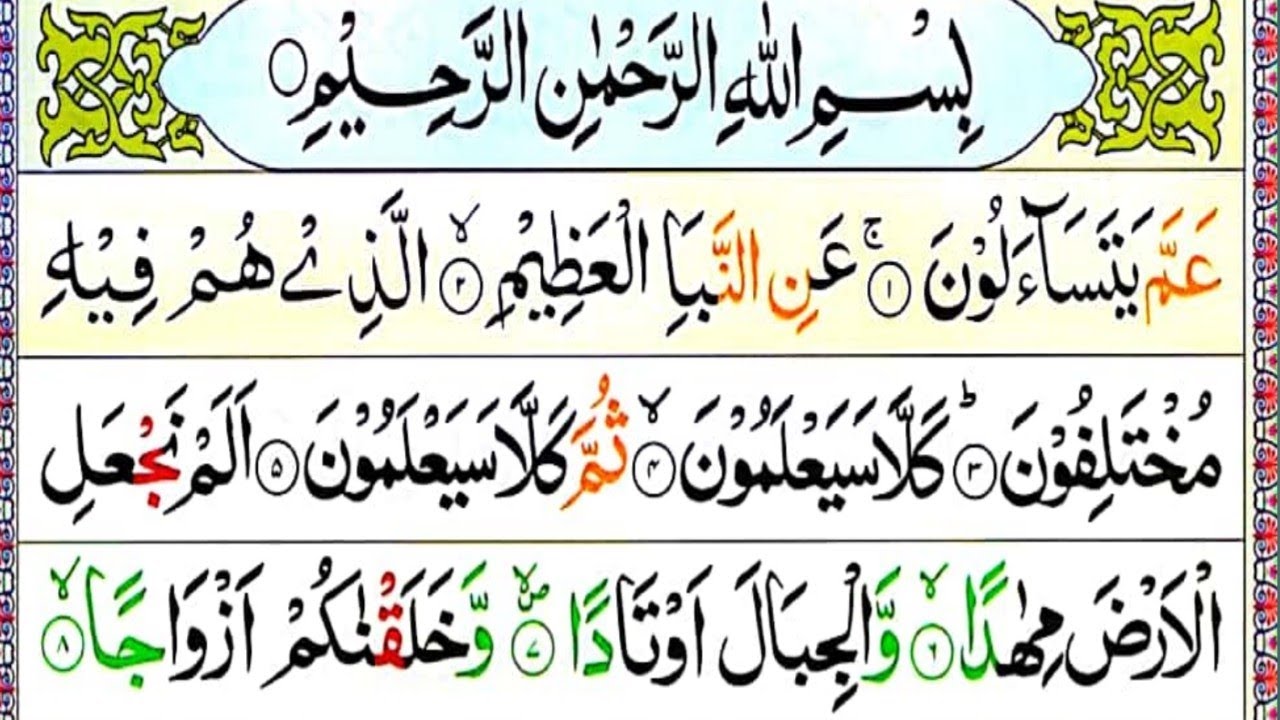 بِسْمِ اللّٰهِ الرَّحْمٰنِ الرَّحِيْمِ ○
عَمَّ يَتَسَآءَلُوْنَ ۚ ۝۱ عَنِ النَّبَاِ الْعَظِيْمِ ۙ ۝۲ الَّذِىْ هُمْ فِيْهِ
مُخْتَلِفُوْنَ ؕ ۝۳ كَلَّا سَيَعْلَمُوْنَ ۙ ۝۴ ثُمَّ كَلَّا سَيَعْلَمُوْنَ ۝۵ اَلَمْ نَجْعَلِ
الْاَرْضَ مِهٰدًا ۙ ۝۶ وَّالْجِبَالَ اَوْتَادًا ۪ۙ ۝۷ وَّخَلَقْنٰكُمْ اَزْوَاجًا ۙ ۝۸